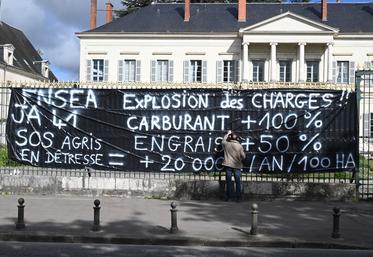 ENSEA EXPLOSION des CHARGES !!
JA 41 CARBURANT +100 %
SOS AGRIS ENGRAIS +50 %
EN DÉTRESSE = +20 000 /AN/100 HA